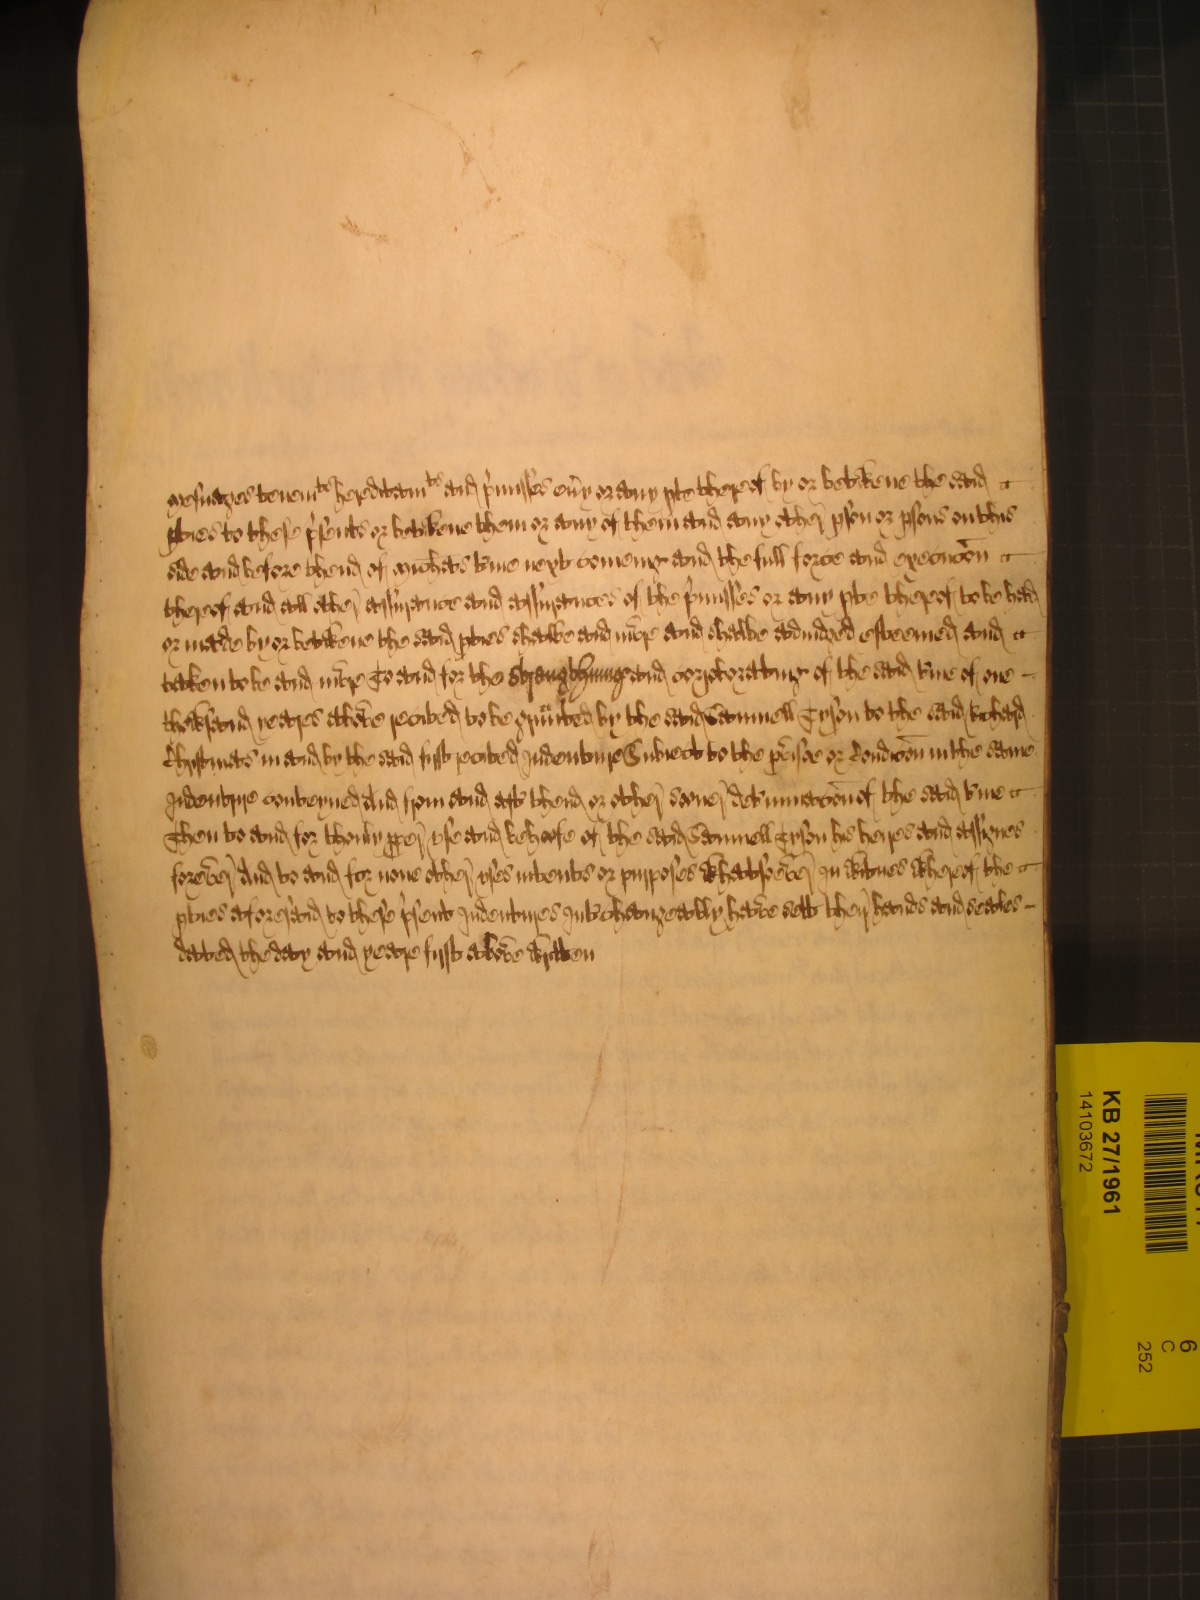 mesuages tenem^ts hereditam^ts and p'misses eu'y or any pte thereof by or betweene the said
pties to these p'sents or betweene them or any of them and any other pson or psons on this
side and before thend of Michas t'me next comeing and the full force and execucõn
thereof and all other assurance and assurances of the p'misses or any pte thereof to be had
or made by or betweene the said pties shalbe and in're and shalbe adiudged esteemed and
taken to be and in're To and for the strengthning and corroborating of the said t'me of one
thowsand yeares aboue recited to be graunted by the said Samuell Tryson to the said Richard
Chrstmas in and by the said first recited Indenture Subiect to the p'uisoe or Condicõn in the same
Indenture conteyned And from and aft' thend or other sooner det'minacõn of the said t'me
Then to and for thonly pper vse and behoofe of the said Samuell Tryson his heires and assignes
foreuer And to and for none other vses intents or purposes whatsoeuer In wittnes whereof the
pties aforesaid to these p'sent Indentures Int'changeably haue sett their hands and seales
dated the day and yeare first aboue written
KB 27/1961
14103672
6
C
252